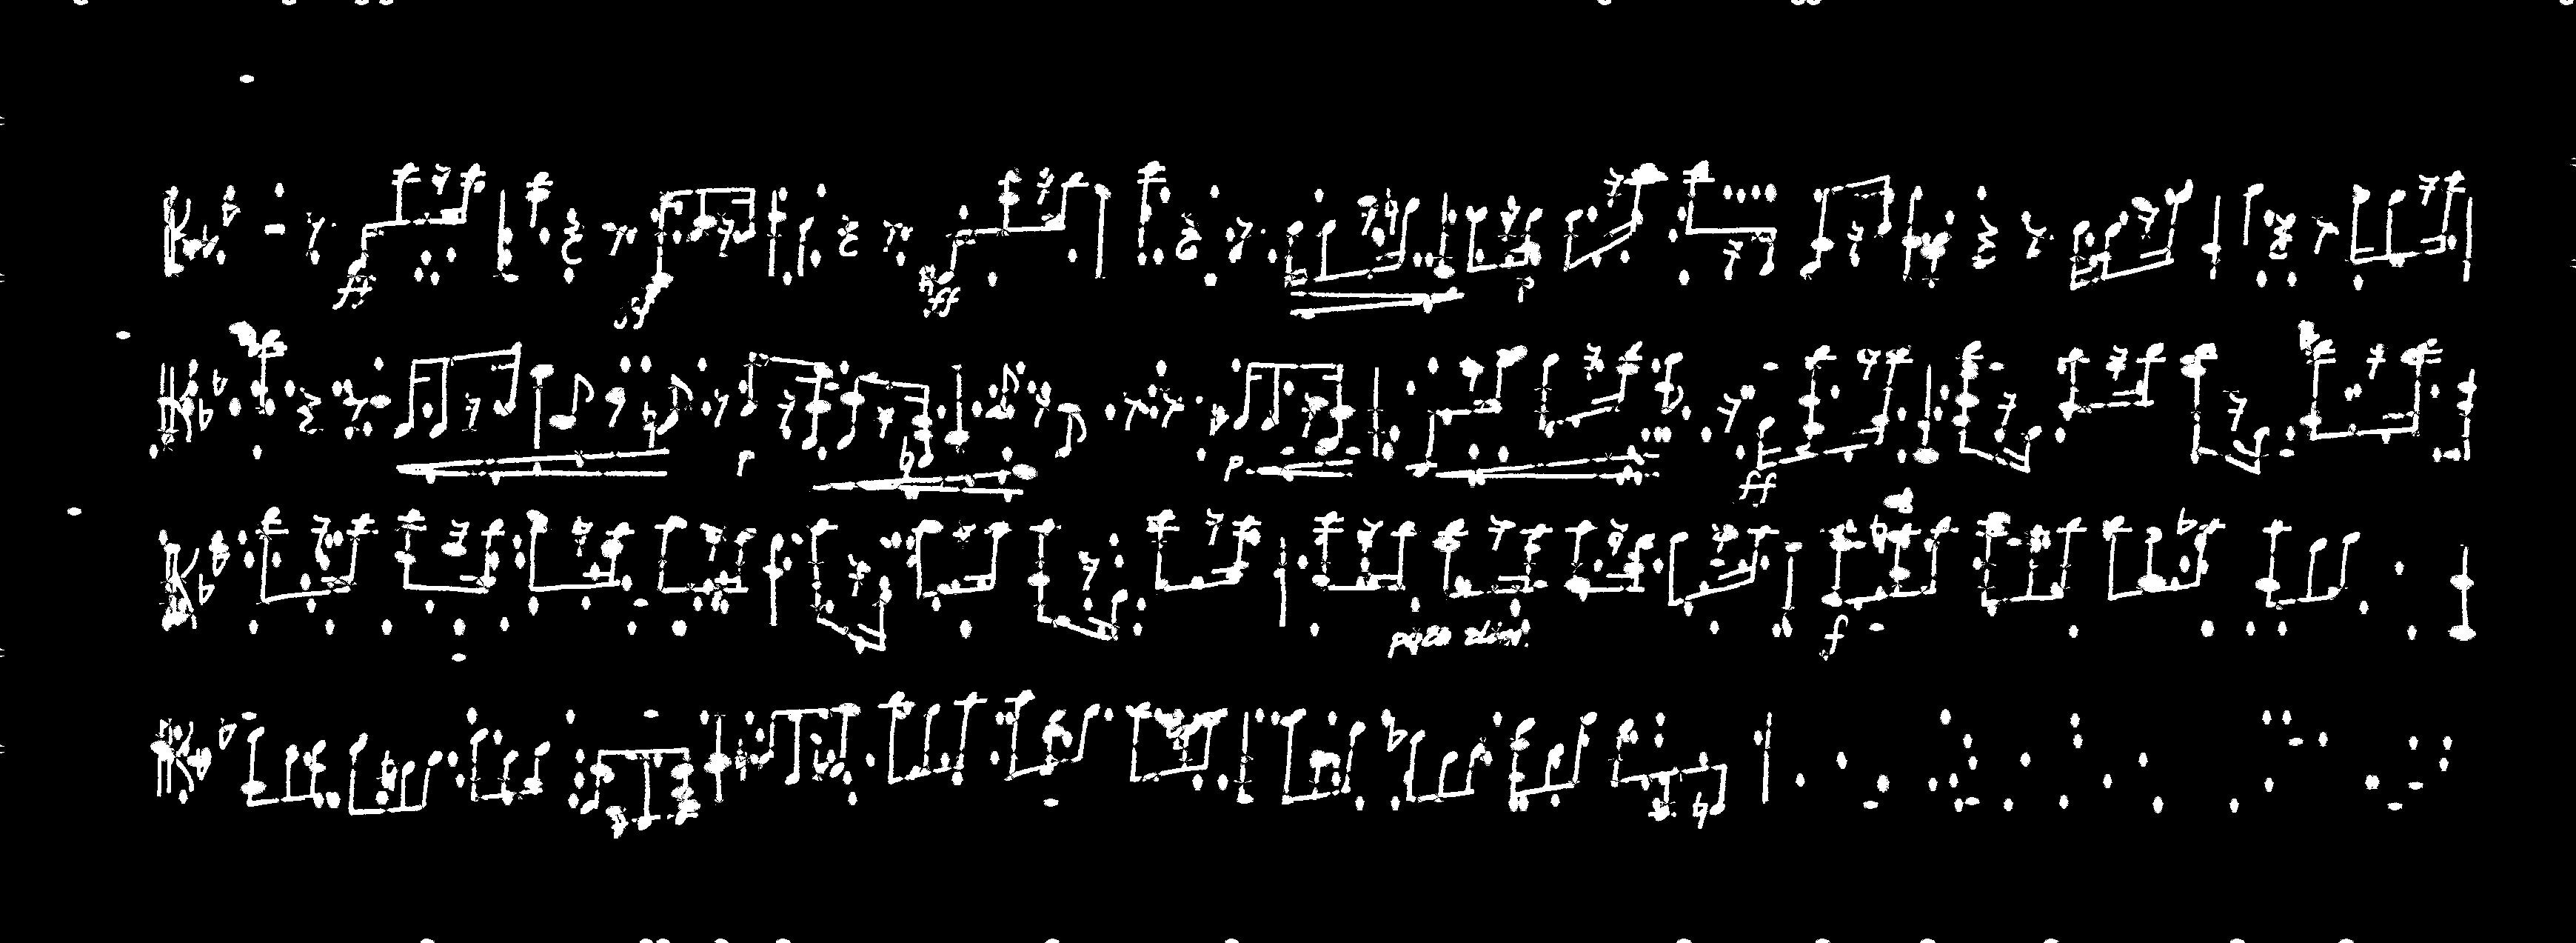 ff ff ff p
p p ff
poco dim. f